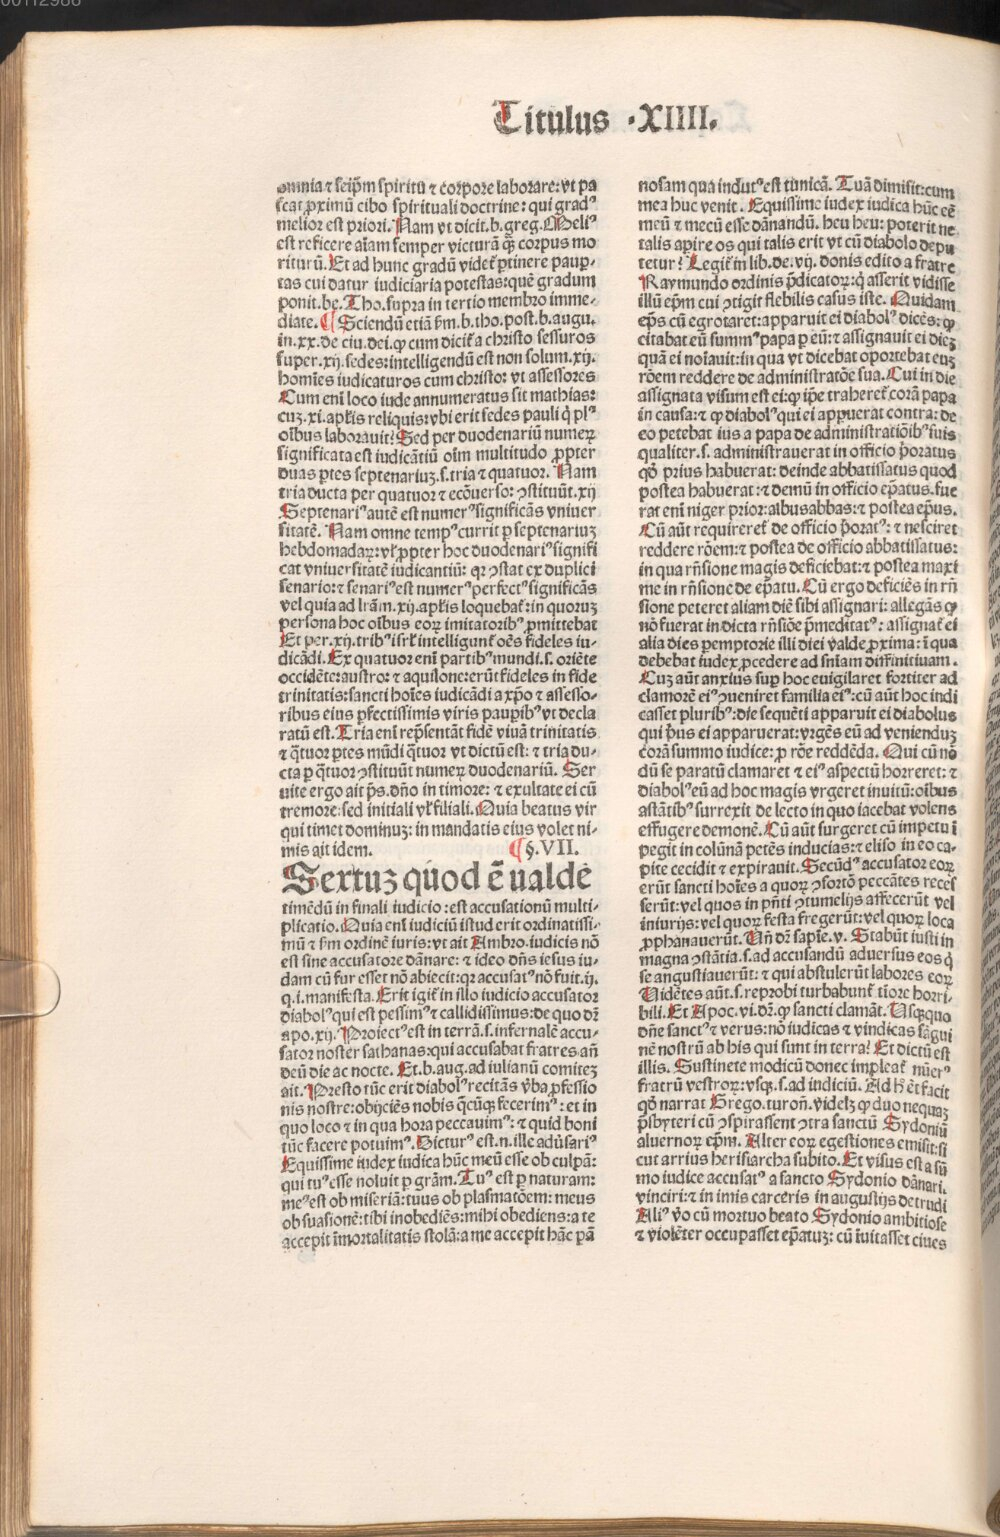 00112988
Titulus ·XIIII.
omnia ⁊ seip̄m spiritu ⁊ corpore laborare: vt pa
scat ꝓximū cibo spirituali doctrine: qui gradꝰ
melior est priori. Nam vt dicit.b.greg. Meliꝰ
est reficere aīam semper victurā qꝫ corpus mo
riturū. Et ad hunc gradū videt̄ ꝑtinere pauꝑ-
tas cui datur iudiciaria potestas: quē gradum
ponit.be.Tho.supra in tertio membro imme-
diate. ¶ Sciendū etiā ẜm.b.tho.post.b.augu.
in.xx.de ciu.dei.ꝙ cum dicit̄ a christo sessuros
super.xij.sedes: intelligendū est non solum.xij.
homīes iudicaturos cum christo: vt assessores
Cum enī loco iude annumeratus sit mathias:
cuꝫ.xi.apl̄is reliquis: vbi erit sedes pauli q̇ plꝰ
oībus laborauit? Sed per duodenariū numeꝝ
significata est iudicātiū oīm multitudo ꝓpter
duas ꝑtes septenariuꝫ.s.tria ⁊ quatuor. Nam
tria ducta per quatuor ⁊ ecōuerso: ꝯstituūt.xij
Septenariꝰ autē est numerꝰ significās vniuer
sitatē. Nam omne tempꝰ currit ꝑ septenariuꝫ
hebdomadaꝝ: vl̄ ꝓpter hoc duodenariꝰ signifi
cat vniuersitatē iudicantiū: qꝛ ꝯstat ex duplici
senario: ⁊ senariꝰ est numerꝰ perfectꝰ significās
vel quia ad lr̄am.xij.apl̄is loquebat̄: in quoruꝫ
persona hoc oībus eoꝝ imitatoribꝰ ꝓmittebat
Et per.xij.tribꝰ isrl̄ intelligunt̄ oēs fideles iu-
dicādi. Ex quatuor enī partibꝰ mundi.s.oriēte
occidēte: austro: ⁊ aquilone: erūt fideles in fide
trinitatis: sancti hoīes iudicādi a xp̄o ⁊ assesso-
ribus eius ꝑfectissimis viris pauꝑibꝰ vt decla
ratū est. Tria enī rep̄sentāt fidē viuā trinitatis
⁊ q̄tuor ꝑtes mūdi q̄tuor vt dictū est: ⁊ tria du-
cta ꝑ q̄tuor ꝯstituūt numeꝝ duodenariū. Ser
uite ergo ait p̄s.dn̄o in timore: ⁊ exultate ei cū
tremore: sed initiali vl̄ filiali. Quia beatus vir
qui timet dominuꝫ: in mandatis eius volet ni-
mis ait idem. ¶ §.VII.
Sextuꝫ quod ē ualde
timēdū in finali iudicio: est accusationū multi-
plicatio. Quia enī iudiciū istud erit ordinatissi-
mū ⁊ ẜm ordinē iuris: vt ait Ambro. iudicis nō
est sine accusatore dānare: ⁊ ideo dn̄s iesus iu-
dam cū fur esset nō abiecit: qꝛ accusatꝰ nō fuit.ij.
q.i.manifesta. Erit igit̄ in illo iudicio accusator
diabolꝰ qui est pessimꝰ ⁊ callidissimus: de quo dꝛ
apo.xij. Proiectꝰ est in terrā.s.infernalē accu-
sator noster sathanas: qui accusabat fratres an̄
deū die ac nocte. Et.b.aug.ad iulianū comiteꝫ
ait. Presto tūc erit diabolꝰ recitās v̄ba ꝓfessio
nis nostre: obijciēs nobis q̄cūqꝫ fecerimꝰ: et in
quo loco ⁊ in qua hora peccauimꝰ: ⁊ quid boni
tūc facere potuimꝰ. Dicturꝰ est.n.ille adūsariꝰ
Equissime iudex iudica hūc meū esse ob culpā:
qui tuꝰ esse noluit ꝑ gr̄am. Tuꝰ est ꝑ naturam:
meꝰ est ob miseriā: tuus ob plasmatōem: meus
ob suasionē: tibi inobediēs: mihi obediens: a te
accepit īmortalitatis stolā: a me accepit hāc pā
nosam qua indutꝰ est tunicā. Tuā dimisit: cum
mea huc venit. Equissime iudex iudica hūc eē
meū ⁊ mecū esse dānandū. heu heu: poterit ne
talis apire os qui talis erit vt cū diabolo depu
tetur? Legit̄ in lib.de.vij.donis edito a fratre
Raymundo ordinis p̄dicatoꝝ: q̇ asserit vidisse
illū ep̄m cui ꝯtigit flebilis casus iste. Quidam
ep̄s cū egrotaret: apparuit ei diabolꝰ dicēs: ꝙ
citabat eū summꝰ papa ꝑ eū: ⁊ assignauit ei dieꝫ
quā ei noīauit: in qua vt dicebat oportebat euꝫ
rōem reddere de administratōe sua. Cui in die
assignata visum est ei: ꝙ ip̄e traheret̄ corā papa
in causa: ⁊ ꝙ diabolꝰ qui ei apꝑuerat contra: de
eo petebat ius a papa de administratiōibꝰ suis
qualiter.s.administrauerat in officio p̄oratus
qḋ prius habuerat: deinde abbatissatus quod
postea habuerat: ⁊ demū in officio ep̄atus. fue
rat enī niger prior: albus abbas: ⁊ postea ep̄us.
Cū aūt requireret̄ de officio p̄oratꝰ: ⁊ nesciret
reddere rōem: ⁊ postea de officio abbatissatus:
in qua rn̄sione magis deficiebat: ⁊ postea maxi
me in rn̄sione de ep̄atu. Cū ergo deficiēs in rn̄
sione peteret aliam diē sibi assignari: allegās ꝙ
nō fuerat in dicta rn̄siōe p̄meditatꝰ: assignat̄ ei
alia dies ꝑemptorie illi diei valde ꝓxima: ī qua
debebat iudex ꝓcedere ad sn̄iam diffinitiuam.
Cuꝫ aūt anxius sup hoc euigilaret fortiter ad
clamorē eiꝰ ꝯueniret familia eiꝰ: cū aūt hoc indi
casset pluribꝰ: die sequēti apparuit ei diabolus
qui p̄us ei apparuerat: vrgēs eū ad veniendūꝫ
corā summo iudice: ꝑ rōe reddēda. Qui cū nō
dū se paratū clamaret ⁊ eiꝰ aspectū horreret: ⁊
diabolꝰ eū ad hoc magis vrgeret inuitū: oībus
astātibꝰ surrexit de lecto in quo iacebat volens
effugere demonē. Cū aūt surgeret cū impetu ī
pegit in colūnā petēs inducias: ⁊ eliso in eo ca-
pite cecidit ⁊ expirauit. Secūdꝰ accusator eoꝝ
erūt sancti hoīes a quoꝝ ꝯsortō peccātes reces
serūt: vel quos in pn̄ti ꝯtumelijs affecerūt vel
iniurijs: vel quoꝝ festa fregerūt: vel quoꝝ loca
ꝓphanauerūt. Un̄ dꝛ sapīe.v. Stabūt iusti in
magna ꝯstātia.s.ad accusandū aduersus eos q̇
se angustiauerūt: ⁊ qui abstulerūt labores eoꝝ
Uidētes aūt.s.reprobi turbabunt̄ tīore horri-
bili. Et Apoc.vi.dꝛ.ꝙ sancti clamāt. Usqꝫquo
dn̄e sanctꝰ ⁊ verus: nō iudicas ⁊ vindicas sāgui
nē nostrū ab his qui sunt in terra? Et dictū est
illis. Sustinete modicū donec impleat̄ nūerꝰ
fratrū vestroꝝ: vsqꝫ.s.ad iudiciū. Ad h̄ et facit
qḋ narrat Grego.turon̄.videlꝫ ꝙ duo nequaꝫ
p̄sbyteri cū ꝯspirassent ꝯtra sanctū Sydoniū
aluernoꝝ ep̄m. Alter eoꝝ egestiones emisit: si
cut arrius herisiarcha subito. Et visus est a sū
mo iudice accusatꝰ a sancto Sydonio dānari.
vinciri: ⁊ in imis carceris in augustijs detrudi
Aliꝰ v̄o cū mortuo beato Sydonio ambitiose
⁊ violēter occupasset ep̄atuꝫ: cū īuitasset ciues